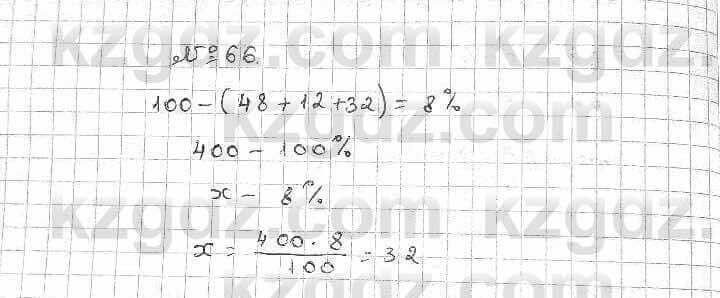 № 66.
100 - (48 + 12 + 32) = 8%
400 - 100%
x - 8%
x = 400 · 8 / 100 = 32
kzgdz.com kzgdz.com
kzgdz.com
kzgdz.com kzgdz.com
kzgdz.com